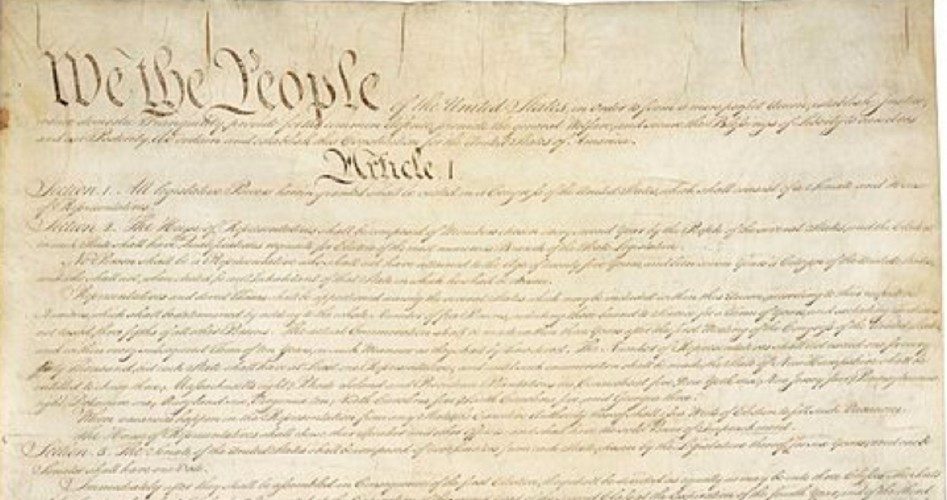 We the People of the United States, in Order to form a more perfect Union, establish Justice,
insure domestic Tranquility, provide for the common defence, promote the general Welfare, and secure the Blessings of Liberty to ourselves
and our Posterity, do ordain and establish this Constitution for the United States of America.
Article I
Section 1. All legislative Powers herein granted shall be vested in a Congress of the United States, which shall consist of a Senate and House
of Representatives.
Section 2. The House of Representatives shall be composed of Members chosen every second Year by the People of the several States, and the Electors
in each State shall have Qualifications requisite for Electors of the most numerous Branch of the State Legislature.
No Person shall be a Representative who shall not have attained to the Age of twenty five Years, and been seven Years a Citizen of the United States,
and who shall not, when elected, be an Inhabitant of that State in which he shall be chosen.
Representatives and direct Taxes shall be apportioned among the several States which may be included within this Union, according to their respective
Numbers, which shall be determined by adding to the whole Number of free Persons, including those bound to Service for a Term of Years, and excluding Indians
not taxed, three fifths of all other Persons. The actual Enumeration shall be made within three Years after the first Meeting of the Congress of the United States,
and within every subsequent Term of ten Years, in such Manner as they shall by Law direct. The Number of Representatives shall not exceed one for every
thirty Thousand, but each State shall have at Least one Representative; and until such enumeration shall be made, the State of New Hampshire shall be
entitled to chuse three, Massachusetts eight, Rhode Island and Providence Plantations one, Connecticut five, New York six, New Jersey four, Pennsylvania
eight, Delaware one, Maryland six, Virginia ten, North Carolina five, South Carolina five, and Georgia three.
When vacancies happen in the Representation from any State, the Executive Authority thereof shall issue Writs of Election to fill such Vacancies.
The House of Representatives shall chuse their Speaker and other Officers; and shall have the sole Power of Impeachment.
Section 3. The Senate of the United States shall be composed of two Senators from each State, chosen by the Legislature thereof, for six Years; and each
Senator shall have one Vote.
Immediately after they shall be assembled in Consequence of the first Election, they shall be divided as equally as may be into three Classes. The Seats